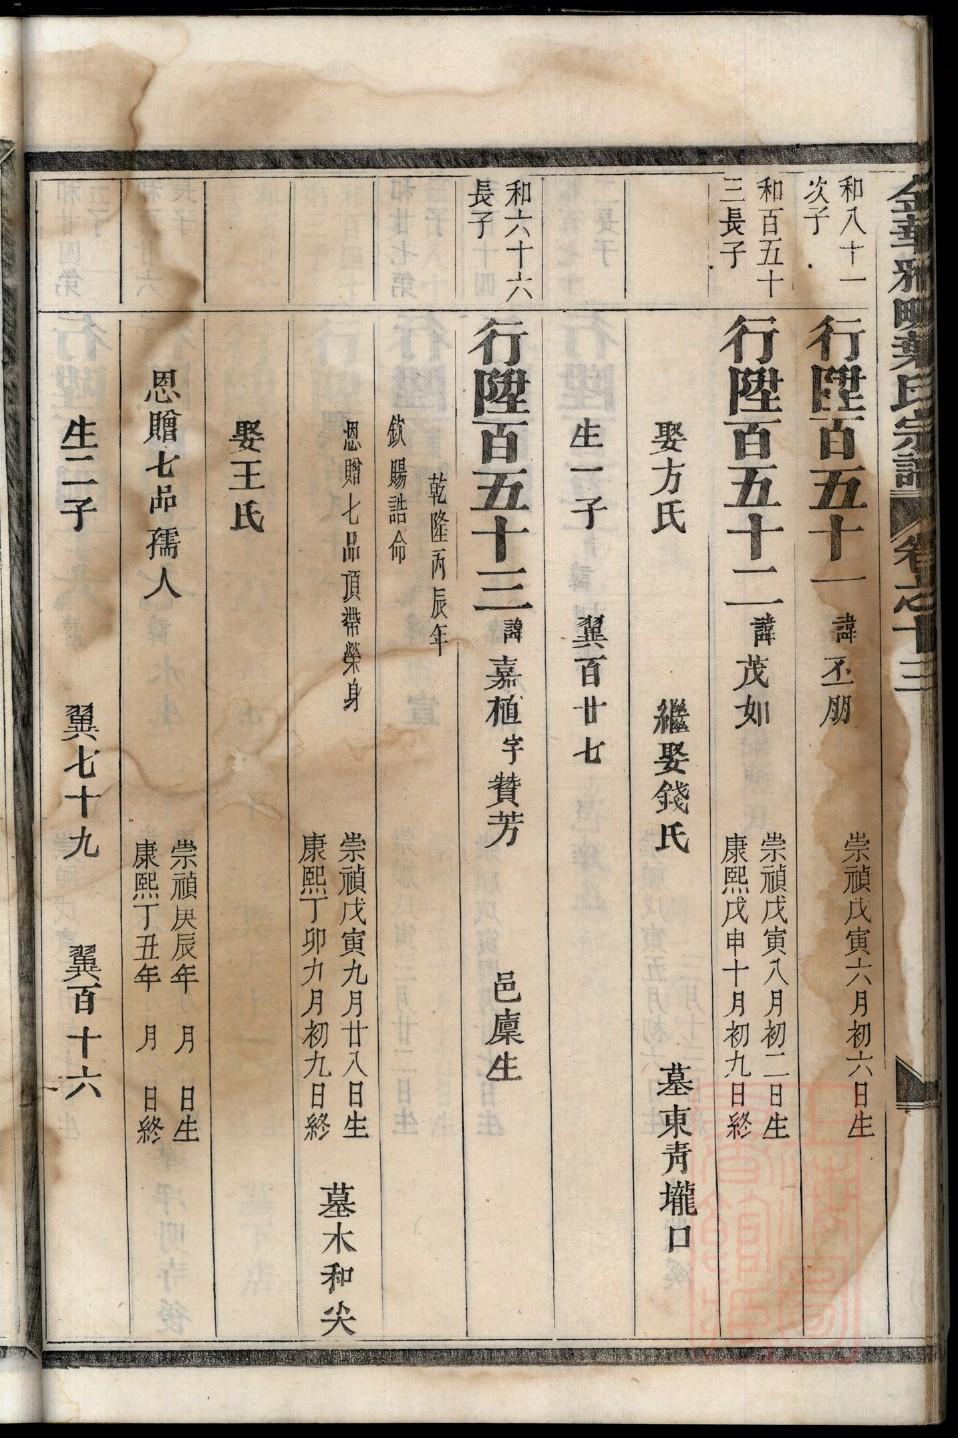 金華雅畈葉氏宗譜 卷之十三
和八十一
次子
行陞百五十一 諱丕朋 崇禎戊寅六月初六日生
和百五十
三長子
行陞百五十二 諱茂如 崇禎戊寅八月初二日生
康熙戊申十月初九日終
娶方氏 繼娶錢氏 墓東靑壠口
生一子 翼百廿七
和六十六
長子
行陞百五十三 諱嘉植 字贊芳 邑廩生
乾隆丙辰年
欽賜誥命
恩贈七品頂帶榮身 崇禎戊寅九月廿八日生
康熙丁卯九月初九日終 墓木和尖
娶王氏
恩贈七品孺人 崇禎庚辰年 月 日生
康熙丁丑年 月 日終
生二子 翼七十九 翼百十六